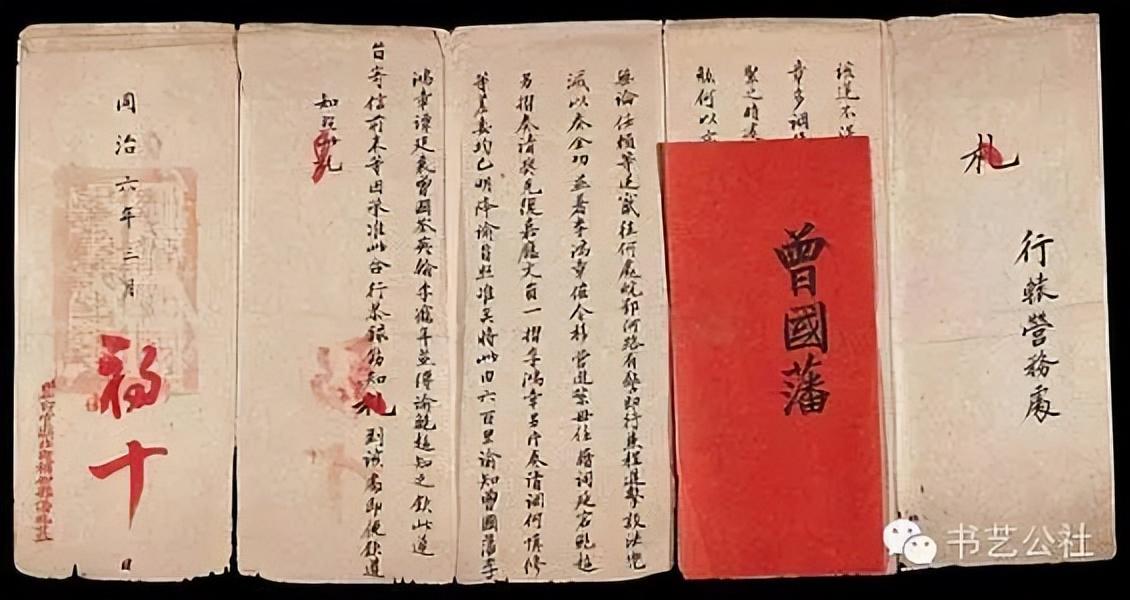 札
行轅營務處
曾國藩
該逆不
章多調
聚之時
何以
無論任賴等逆竄往何處皖鄂河路有警即行兼程進擊設法兜
滅以奏全功並著李鴻章催令
另摺奏請獎克復嘉應文員一摺李鴻章另片奏請調何慎修
等差委均已明降諭旨照准矣將此由六百里諭知曾國藩李
鴻章譚廷襄曾國荃英翰李鶴年並傳諭鮑超知之欽此遵
旨寄信前來等因承准此合行恭錄飭知札到該處即便欽遵
知照此札
同治六年三月十日
书艺公社